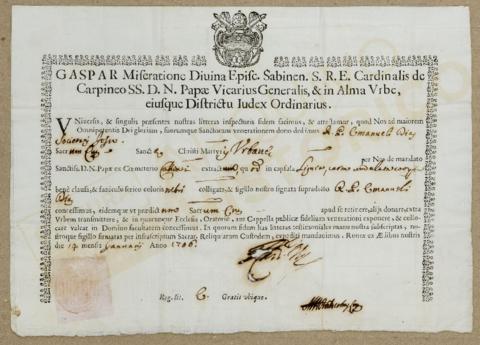 GASPAR Miseratione Diuina Episc. Sabinen. S. R. E. Cardinalis de
Carpineo SS. D. N. Papæ Vicarius Generalis, & in Alma Vrbe,
eiusque Districtu Iudex Ordinarius.
VNiuersis, & singulis præsentes nostras litteras inspecturis fidem facimus, & attestamur, quod Nos ad maiorem
Omnipotentis Dei gloriam, suorumque Sanctorum venerationem dono dedimus R. P. Emanueli
Societatis Iesu
Sacrum Sanct Christi Martyris Vrbani
per Nos de mandato
Sanctiss. D. N. Papæ ex Cœmeterio extract quod in capsula
benè clausa, & funiculo serico coloris rubri colligata, & sigillo nostro signata supradicto R. P. Emanueli
concessimus, eidemque vt prædict Sacrum apud se retinere, alijs donare extra
Vrbem transmittere, & in quacunque Ecclesia, Oratorio, aut Cappella publicæ fidelium venerationi exponere, & collo-
care valeat in Domino facultatem concessimus. In quorum fidem has litteras testimoniales manu nostra subscriptas, no-
stroque sigillo firmatas per infrascriptum Sacrar. Reliquiarum Custodem, expediri mandauimus. Romæ ex Ædibus nostris
die 14 mensis Ianuarij Anno 1706.
Reg. lit. C. Gratis vbique.